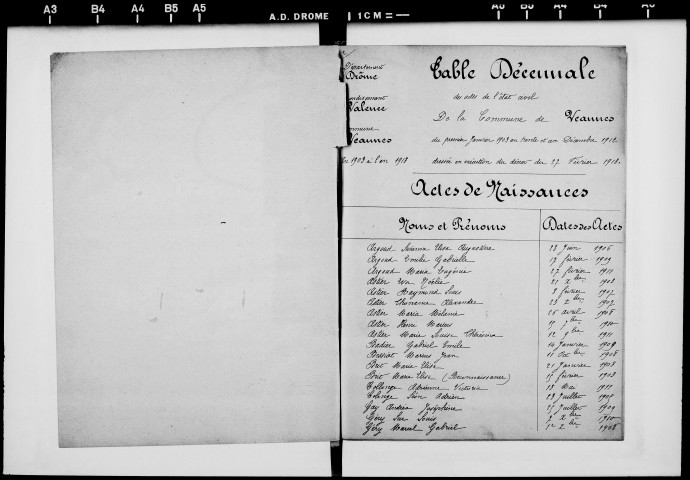 A3 B4 A4 B5 A5 A.D. DROME 1 CM A5 B5 A4 B4 A3
Département
Drôme
Arrondissement
Valence
Commune
Veaunes
De 1903 à l'an 1913
Table Décennale
des actes de l'état civil
De la Commune de Veaunes
du premier Janvier 1903 au trente et un Décembre 1912
dressée en exécution du décret du 27 Février 1913.
Actes de Naissances
Noms et Prénoms Dates des Actes
Argoud Elise Augustine 23 Juin 1906
Argoud Emilie Gabrielle 17 février 1909
Argoud Maria Eugénie 27 février 1911
Astier Noélie 21 Xbre 1903
Astier Raymond Louis 8 février 1907
Astier Alexandre 23 Xbre 1907
Astier Maria Mélanie 26 avril 1908
Astier Henri Marius 1910
Astier Marie Louise 12 9bre 1911
Badier Gabriel Emile 14 Janvier 1909
Marius Jean 11 Octbre 1908
Bret Marie Elise 21 Janvier 1903
Bret Marie Elise (Reconnaissance) 17 février 1903
Collange Adrienne Victoria 18 Mai 1911
Collange Adrien 23 Juillet
Gay Andréa Joséphine 25 Juillet 1909
Géry Louis 2 Xbre 1910
Géry Marcel Gabriel 1er Xbre 1908